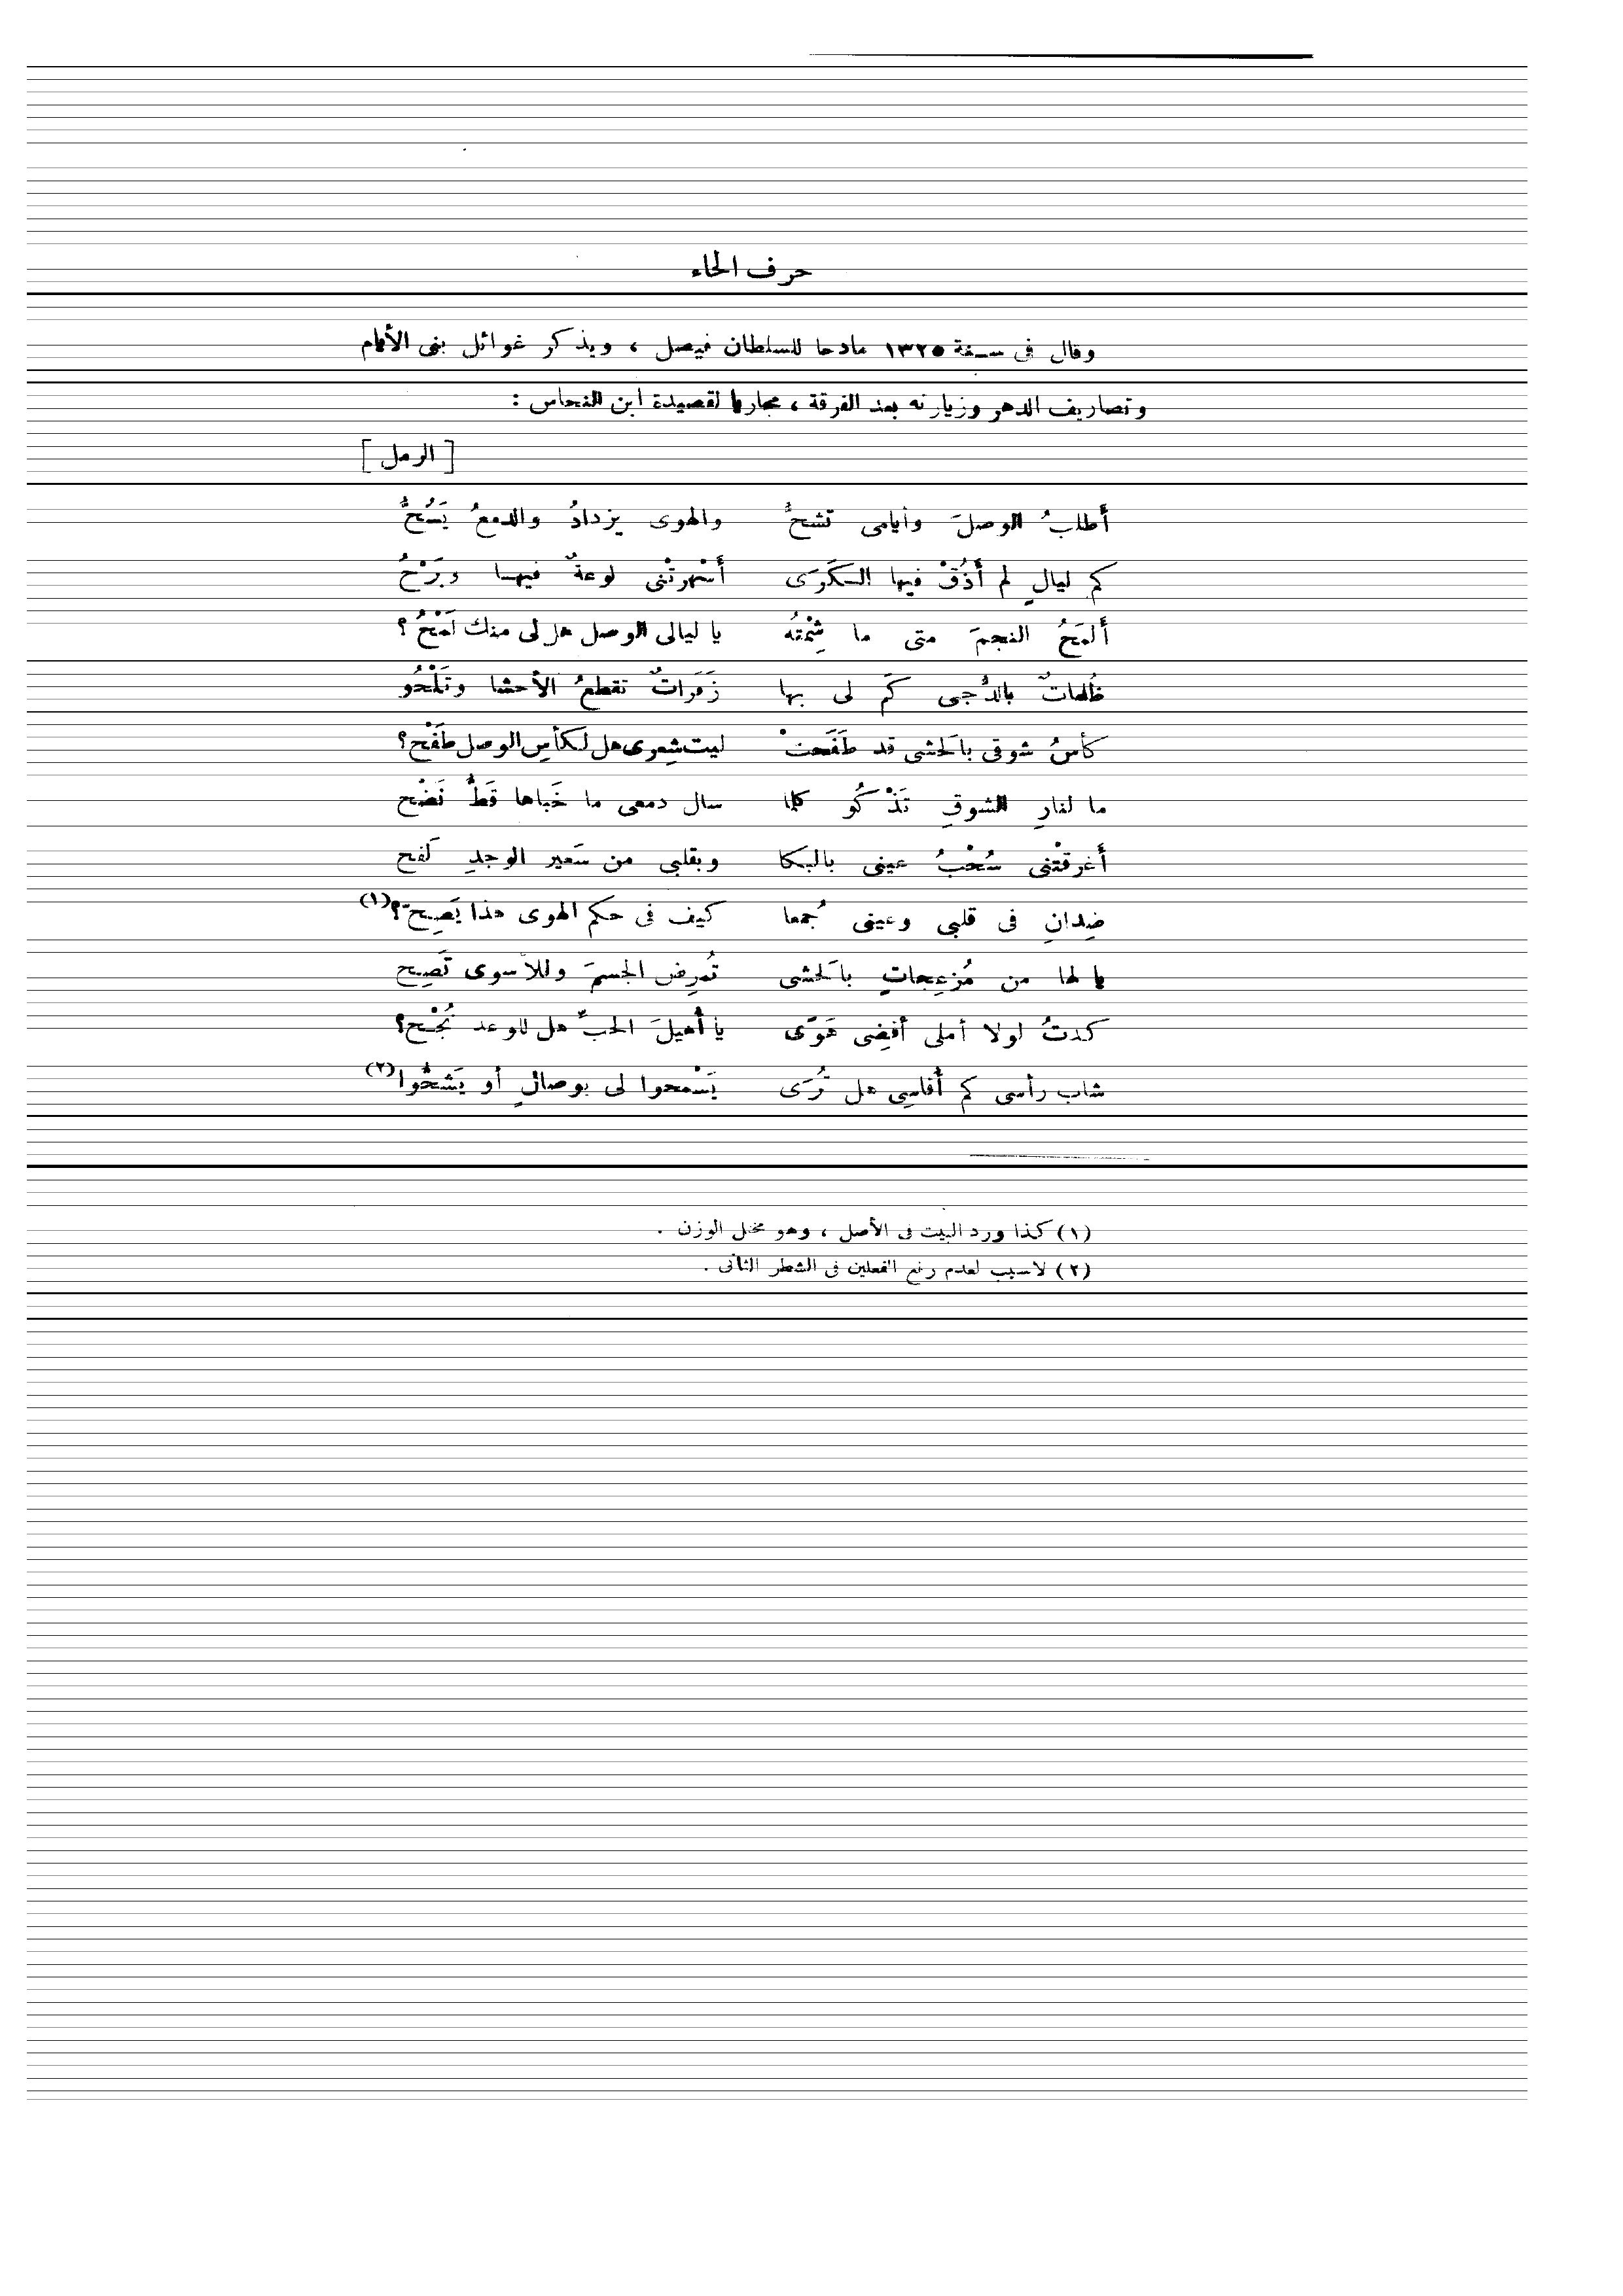 حرف الحاء
وقال فى سنة ١٣٢٥ مادحا للسلطان فيصل ، ويذكر غوائل بنى الأيام
وتصاريف الدهر وزيارته بعد الفرقة ، مجاريا لقصيدة ابن النحاس :
[ الرمل ]
أَطلبُ الوصلَ وأيامى تشحُّ والهوى يزدادُ والدمعُ يَسُحُّ
كم ليالٍ لم أَذُقْ فيها الكَرَى أَسْهرتْنى لوعةٌ فيها وبَرْحُ
أَلمَحُ النجمَ متى ما شِمْتهُ يا ليالى الوصل هل لى منك لَمْحُ ؟
ظُلماتٌ بالدُّجى كَم لى بها زَفَراتٌ تقطعُ الأحشا وتَلْحُو
كأسُ شوقى بالَحشى قد طَفَحتْ ليت شِعرى هل لكأسِ الوصل طَفْح؟
ما لنارِ الشوقِ تَذْكُو كلما سال دمعى ما خَباها قَطُّ نَضْح
أَغرقتْنى سُحْبُ عينى بالبكا وبقلبى من سَعير الوجدِ لَفح
ضِدانِ فى قلبى وعينى جُمعا كيف فى حكم الهوى هذا يَصِحّ؟(١)
يا لها من مُزعِجاتٍ بالَحشى تُمرِض الجسمَ وللأسوى تَصِح
كدتُ لولا أملى أقضِى هَوًى يا أُهيلَ الحبِّ هل للوعد نُجْح؟
شاب رأسى كم أُقاسِى هل تُرَى يَسْمحوا لى بوصالٍ أو يَشحُّوا(٢)
(١) كذا ورد البيت فى الأصل ، وهو مختل الوزن .
(٢) لا سبب لعدم رفع الفعلين فى الشطر الثانى .